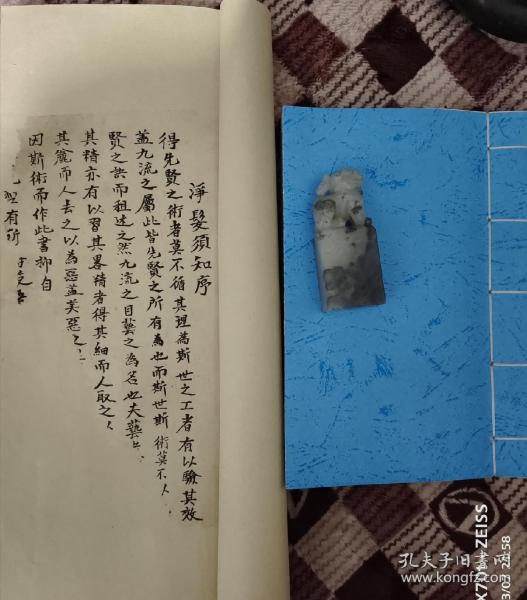 淨髮須知序
得先賢之術者莫不循其理為斯世之工者有以驗其效
蓋九流之屬此皆先賢之所有為也而斯世斯術莫不人
賢之訣而祖述之然九流之目藝之為名也夫藝
其精亦有以習其畧精者得其細而人取之
其麄而人去之以為惡蓋美惡之
因斯術而作此書抑自
有所
孔夫子旧书网
www.kongfz.com
X70 ZEISS